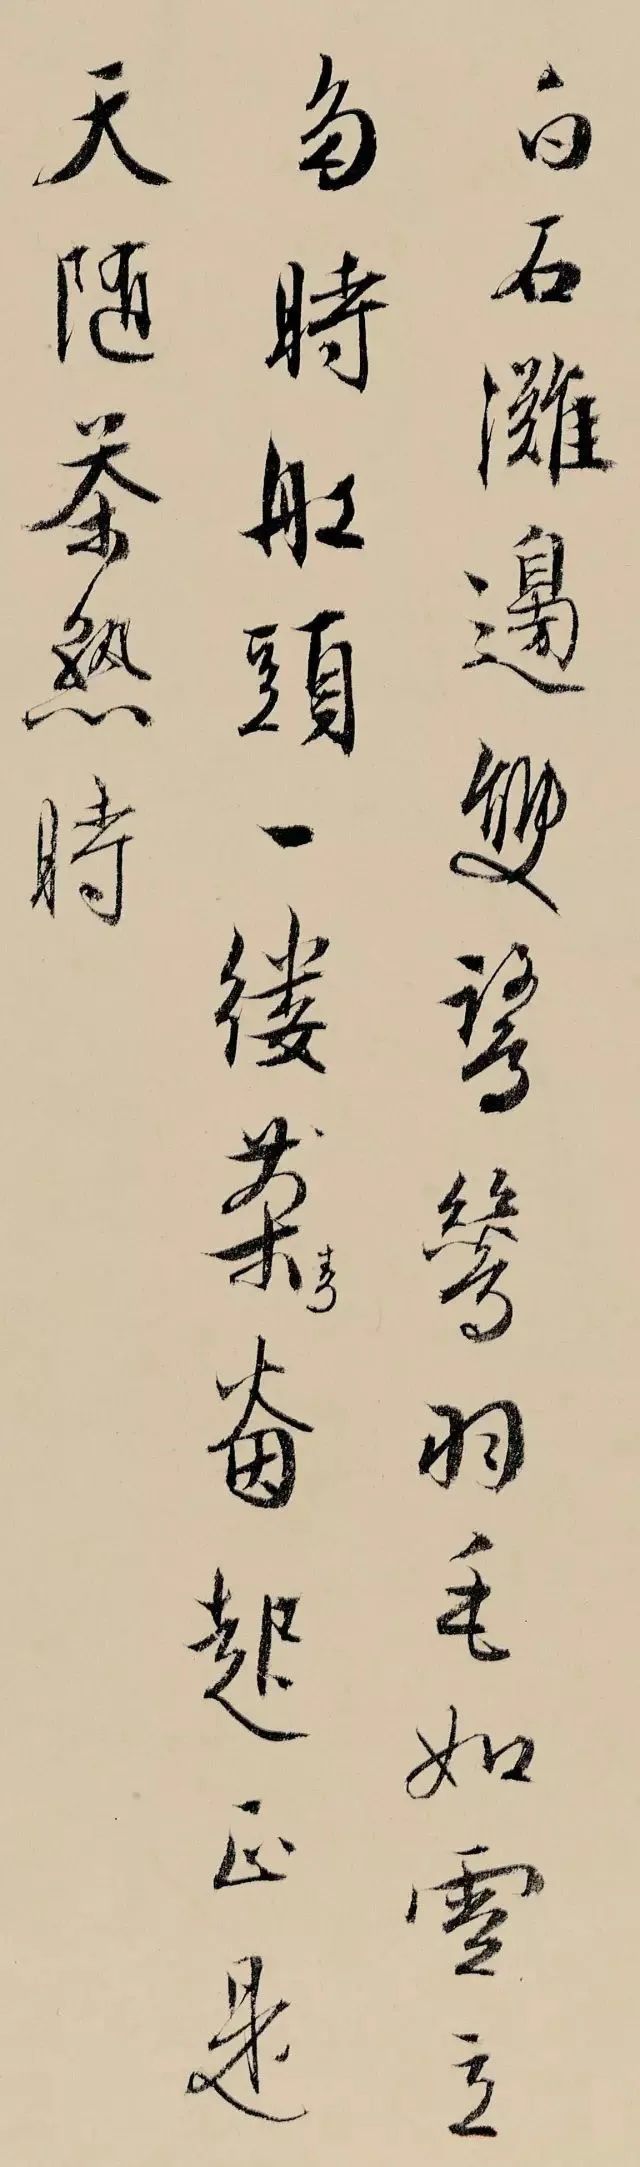 白石灘邊雙鷺鷥羽毛如雪立
多時船頭一縷青烟起正是
天随茶熟時